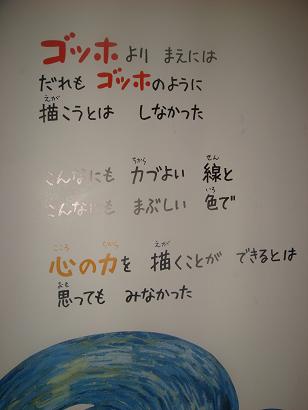 ゴッホより まえには
だれも ゴッホのように
描こうとは しなかった
こんなにも 力づよい 線と
こんなにも まぶしい 色で
心の力を 描くことが できるとは
思っても みなかった